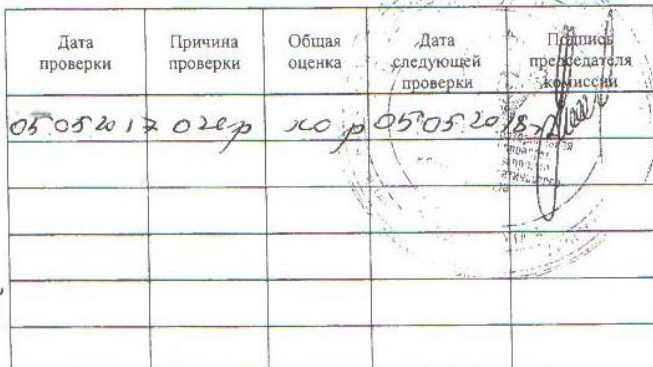 Дата проверки
Причина проверки
Общая оценка
Дата следующей проверки
Подпись председателя комиссии
05 05 2017 очер хор 05 05 2018